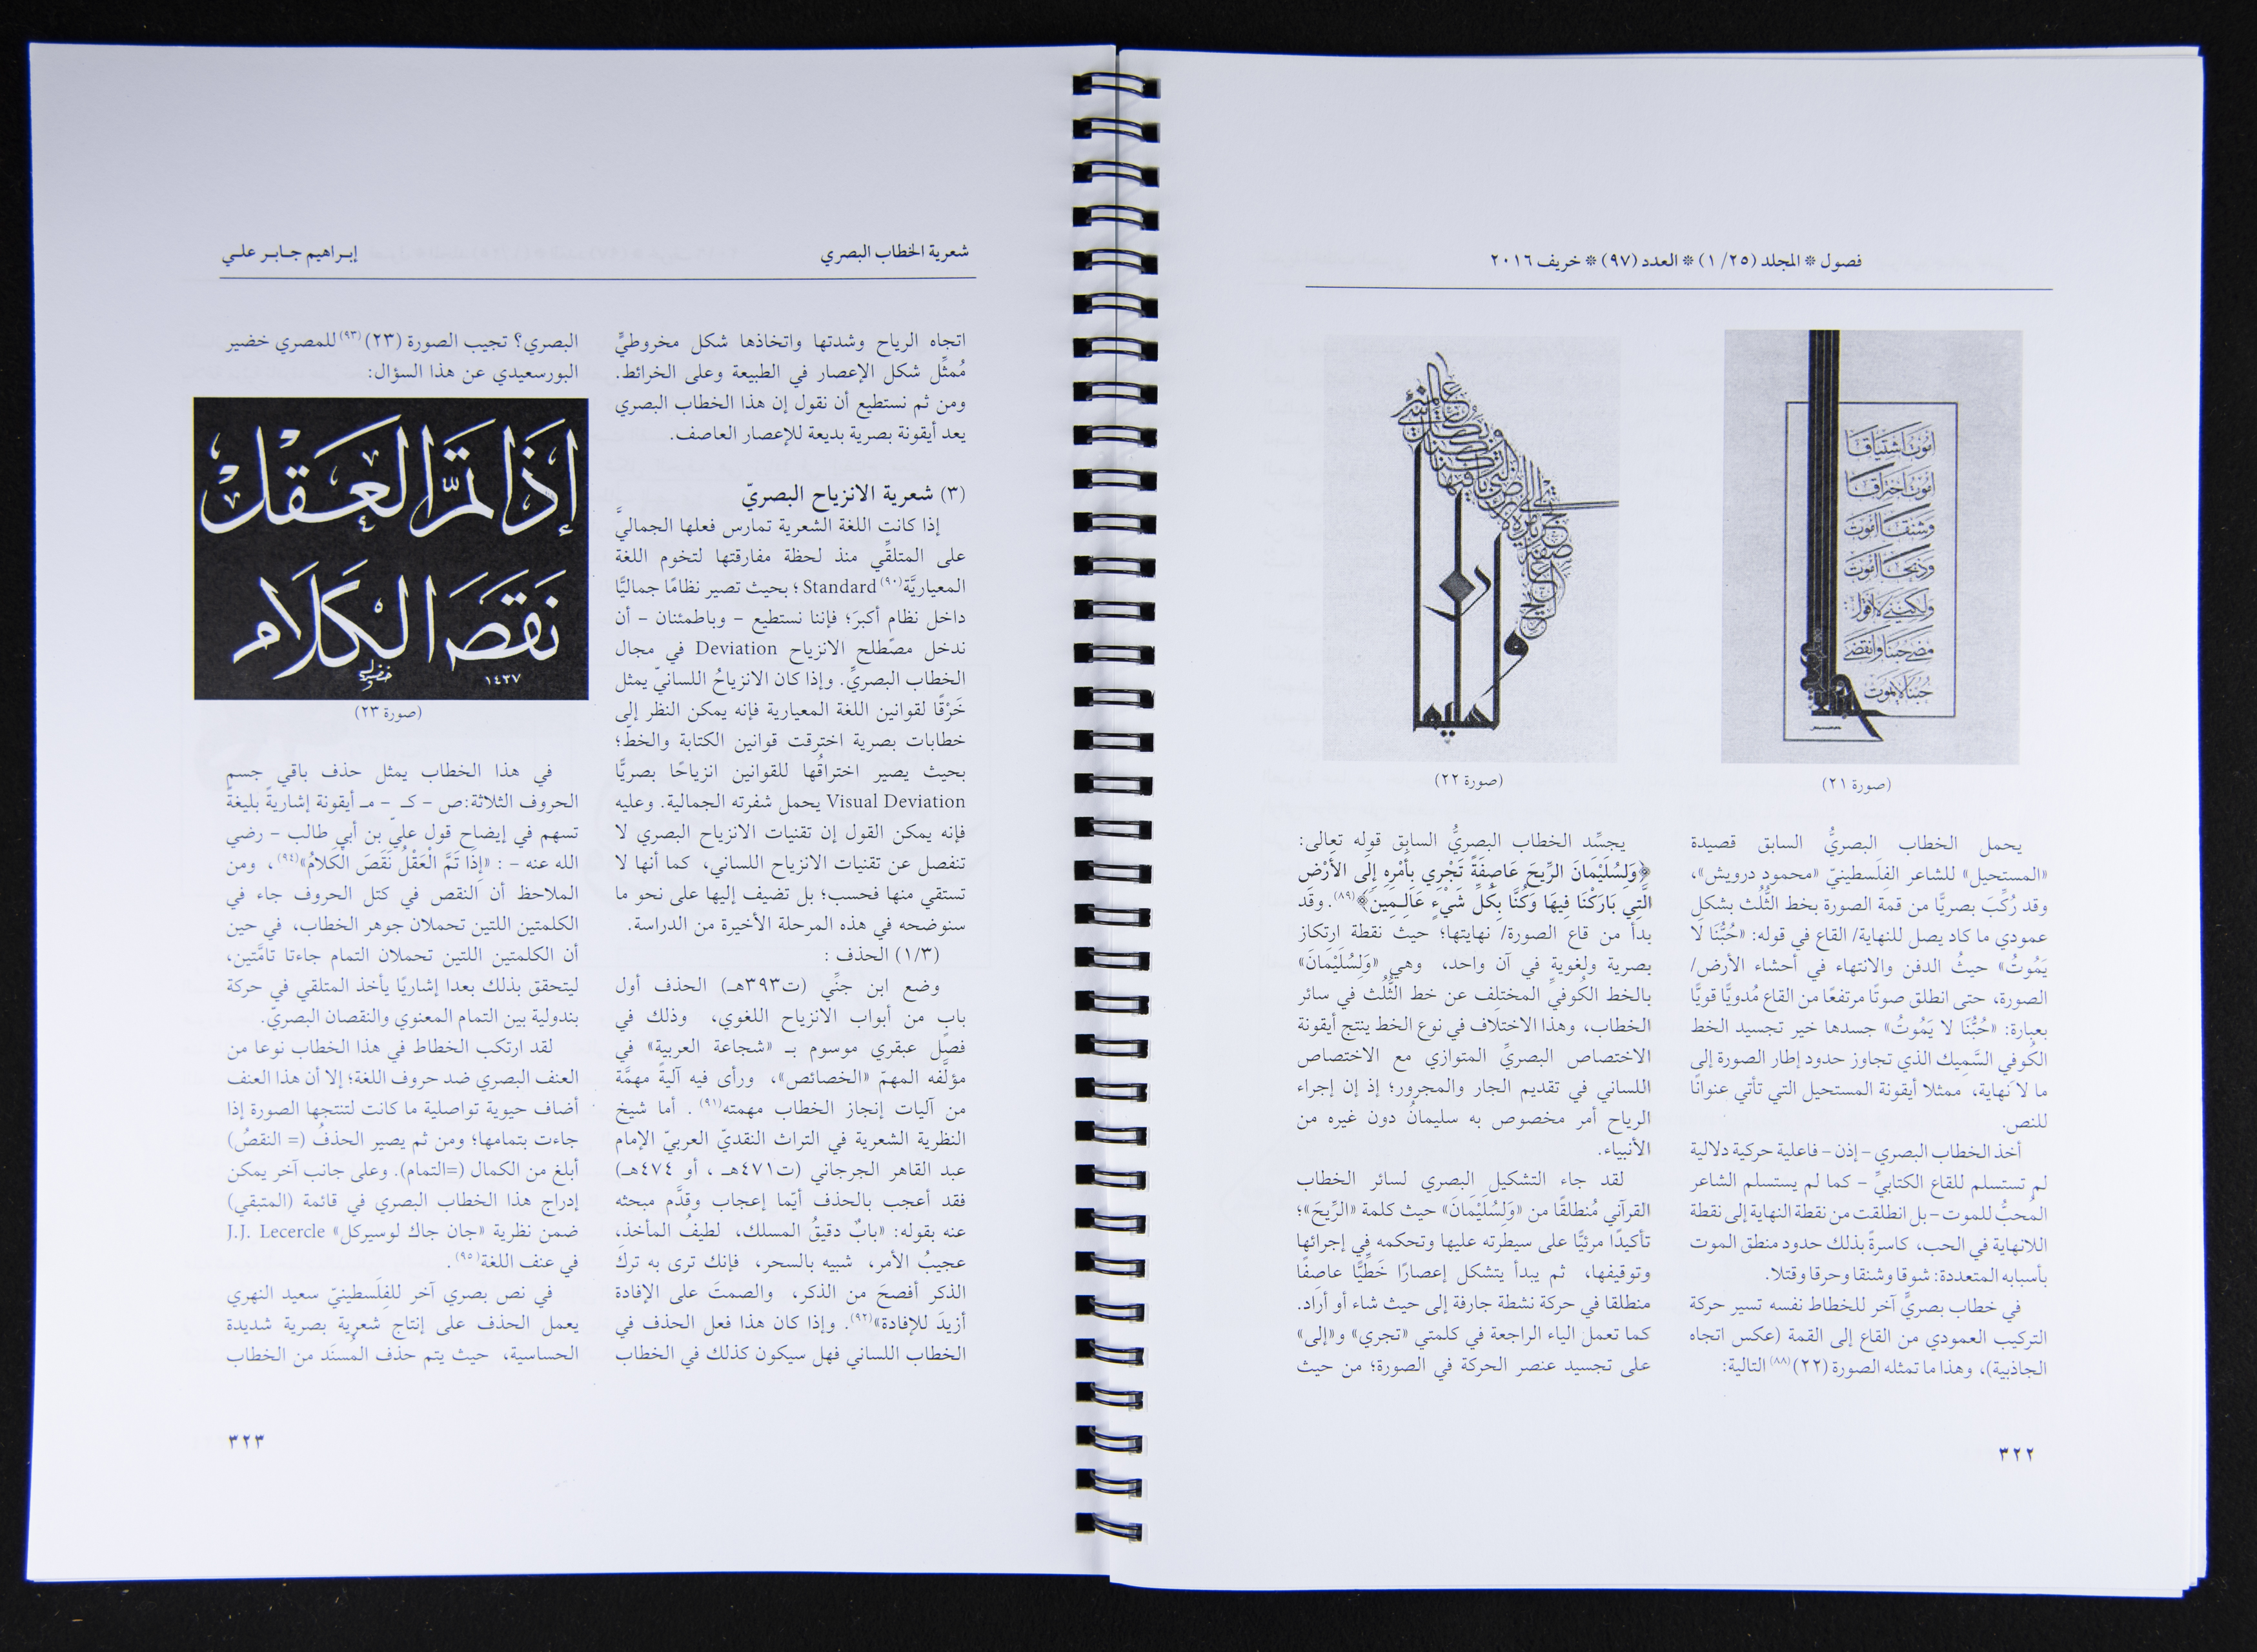 فصول * المجلد (٢٥/ ١) * العدد (٩٧) * خريف ٢٠١٦
أموت اشتياقا
أموت احتراقا
وشنقا أموت
وذبحا أموت
ولكنني لا أقول:
مضى حبنا وانقضى
حبنا لا يموت
(صورة ٢١)
يحمل الخطاب البصريُّ السابق قصيدة
«المستحيل» للشاعر الفِلَسطينيّ «محمود درويش»،
وقد رُكِّبَ بصريًّا من قمة الصورة بخط الثُّلُث بشكل
عمودي ما كاد يصل للنهاية/ القاع في قوله: «حُبُّنَا لَا
يَمُوتُ» حيثُ الدفن والانتهاء في أحشاء الأرض/
الصورة، حتى انطلق صوتًا مرتفعًا من القاع مُدويًّا قويًّا
بعبارة: «حُبُّنَا لا يَمُوتُ» جسدها خير تجسيد الخط
الكُوفي السَّمِيك الذي تجاوز حدود إطار الصورة إلى
ما لا نهاية، ممثلا أيقونة المستحيل التي تأتي عنوانًا
للنص.
أخذ الخطاب البصري – إذن – فاعلية حركية دلالية
لم تستسلم للقاع الكتابيِّ – كما لم يستسلم الشاعر
المُحبُّ للموت – بل انطلقت من نقطة النهاية إلى نقطة
اللانهاية في الحب، كاسرةً بذلك حدود منطق الموت
بأسبابه المتعددة: شوقا وشنقا وحرقا وقتلا.
في خطاب بصريٍّ آخر للخطاط نفسه تسير حركة
التركيب العمودي من القاع إلى القمة (عكس اتجاه
الجاذبية)، وهذا ما تمثله الصورة (٢٢)(٨٨) التالية:
(صورة ٢٢)
يجسِّد الخطاب البصريُّ السابق قوله تعالى:
﴿وَلِسُلَيْمَانَ الرِّيحَ عَاصِفَةً تَجْرِي بِأَمْرِهِ إِلَى الأَرْضِ
الَّتِي بَارَكْنَا فِيهَا وَكُنَّا بِكُلِّ شَيْءٍ عَالِمِينَ﴾(٨٩). وقد
بدأ من قاع الصورة/ نهايتها؛ حيث نقطة ارتكاز
بصرية ولغوية في آن واحد، وهي «وَلِسُلَيْمَانَ»
بالخط الكُوفيِّ المختلِف عن خط الثُّلُث في سائر
الخطاب، وهذا الاختلاف في نوع الخط ينتج أيقونة
الاختصاص البصريِّ المتوازي مع الاختصاص
اللساني في تقديم الجار والمجرور؛ إذ إن إجراء
الرياح أمر مخصوص به سليمانُ دون غيره من
الأنبياء.
لقد جاء التشكيل البصري لسائر الخطاب
القرآني مُنطلقًا من «وَلِسُلَيْمَانَ» حيث كلمة «الرِّيحَ»؛
تأكيدًا مرئيًّا على سيطرته عليها وتحكمه في إجرائها
وتوقيفها، ثم يبدأ يتشكل إعصارًا خَطِّيًّا عاصِفًا
منطلقا في حركة نشطة جارفة إلى حيث شاء أو أراد.
كما تعمل الياء الراجعة في كلمتي «تجري» و«إلى»
على تجسيد عنصر الحركة في الصورة؛ من حيث
٣٢٢
شعرية الخطاب البصري
إبـراهيم جـابـر علـي
اتجاه الرياح وشدتها واتخاذها شكل مخروطيٍّ
مُمثِّل شكل الإعصار في الطبيعة وعلى الخرائط.
ومن ثم نستطيع أن نقول إن هذا الخطاب البصري
يعد أيقونة بصرية بديعة للإعصار العاصف.
(٣) شعرية الانزياح البصريّ
إذا كانت اللغة الشعرية تمارس فعلها الجماليَّ
على المتلقِّي منذ لحظة مفارقتها لتخوم اللغة
المعياريَّة(٩٠) Standard ؛ بحيث تصير نظامًا جماليًّا
داخل نظام أكبرَ؛ فإننا نستطيع – وباطمئنان – أن
ندخل مصطلح الانزياح Deviation في مجال
الخطاب البصريِّ. وإذا كان الانزياحُ اللسانيّ يمثل
خَرْقًا لقوانين اللغة المعيارية فإنه يمكن النظر إلى
خطابات بصرية اخترقت قوانين الكتابة والخطّ؛
بحيث يصير اختراقُها للقوانين انزياحًا بصريًّا
Visual Deviation يحمل شفرته الجمالية. وعليه
فإنه يمكن القول إن تقنيات الانزياح البصري لا
تنفصل عن تقنيات الانزياح اللساني، كما أنها لا
تستقي منها فحسب؛ بل تضيف إليها على نحو ما
سنوضحه في هذه المرحلة الأخيرة من الدراسة.
(١/٣) الحذف :
وضع ابن جنِّي (ت٣٩٣هـ) الحذف أول
باب من أبواب الانزياح اللغوي، وذلك في
فصل عبقري موسوم بـ «شجاعة العربية» في
مؤلَّفه المهمّ «الخصائص»، ورأى فيه آليةً مهمَّة
من آليات إنجاز الخطاب مهمته(٩١) . أما شيخ
النظرية الشعرية في التراث النقديّ العربيّ الإمام
عبد القاهر الجرجاني (ت٤٧١هـ ، أو ٤٧٤هـ)
فقد أعجب بالحذف أيّما إعجاب وقدَّم مبحثه
عنه بقوله: «بابٌ دقيقُ المسلك، لطيفُ المأخذِ،
عجيبُ الأمر، شبيه بالسحر، فإنك ترى به تركَ
الذكر أفصحَ من الذكر، والصمتَ على الإفادة
أزيدَ للإفادة»(٩٢). وإذا كان هذا فعل الحذف في
الخطاب اللساني فهل سيكون كذلك في الخطاب
البصري؟ تجيب الصورة (٢٣)(٩٣) للمصري خضير
البورسعيدي عن هذا السؤال:
إِذَا تَمَّ العَقْلُ
نَقَصَ الكَلَام
خضير
١٤٣٧
(صورة ٢٣)
في هذا الخطاب يمثل حذف باقي جسم
الحروف الثلاثة:ص – كـ – مـ أيقونة إشاريةً بليغةً
تسهم في إيضاح قول عليّ بن أبي طالب – رضي
الله عنه – : «إِذَا تَمَّ الْعَقْلُ نَقَصَ الْكَلامُ»(٩٤)، ومن
الملاحظ أن النقص في كتل الحروف جاء في
الكلمتين اللتين تحملان جوهر الخطاب، في حين
أن الكلمتين اللتين تحملان التمام جاءتا تامَّتين،
ليتحقق بذلك بعدا إشاريًا يأخذ المتلقي في حركة
بندولية بين التمام المعنوي والنقصان البصريّ.
لقد ارتكب الخطاط في هذا الخطاب نوعا من
العنف البصري ضد حروف اللغة؛ إلا أن هذا العنف
أضاف حيوية تواصلية ما كانت لتنتجها الصورة إذا
جاءت بتمامها؛ ومن ثم يصير الحذفُ (= النقصُ)
أبلغ من الكمال (=التمام). وعلى جانب آخر يمكن
إدراج هذا الخطاب البصري في قائمة (المتبقي)
ضمن نظرية «جان جاك لوسيركل» J.J. Lecercle
في عنف اللغة(٩٥) .
في نص بصري آخر للفِلَسطينيّ سعيد النهري
يعمل الحذف على إنتاج شعرية بصرية شديدة
الحساسية، حيث يتم حذف المُسنَد من الخطاب
٣٢٣